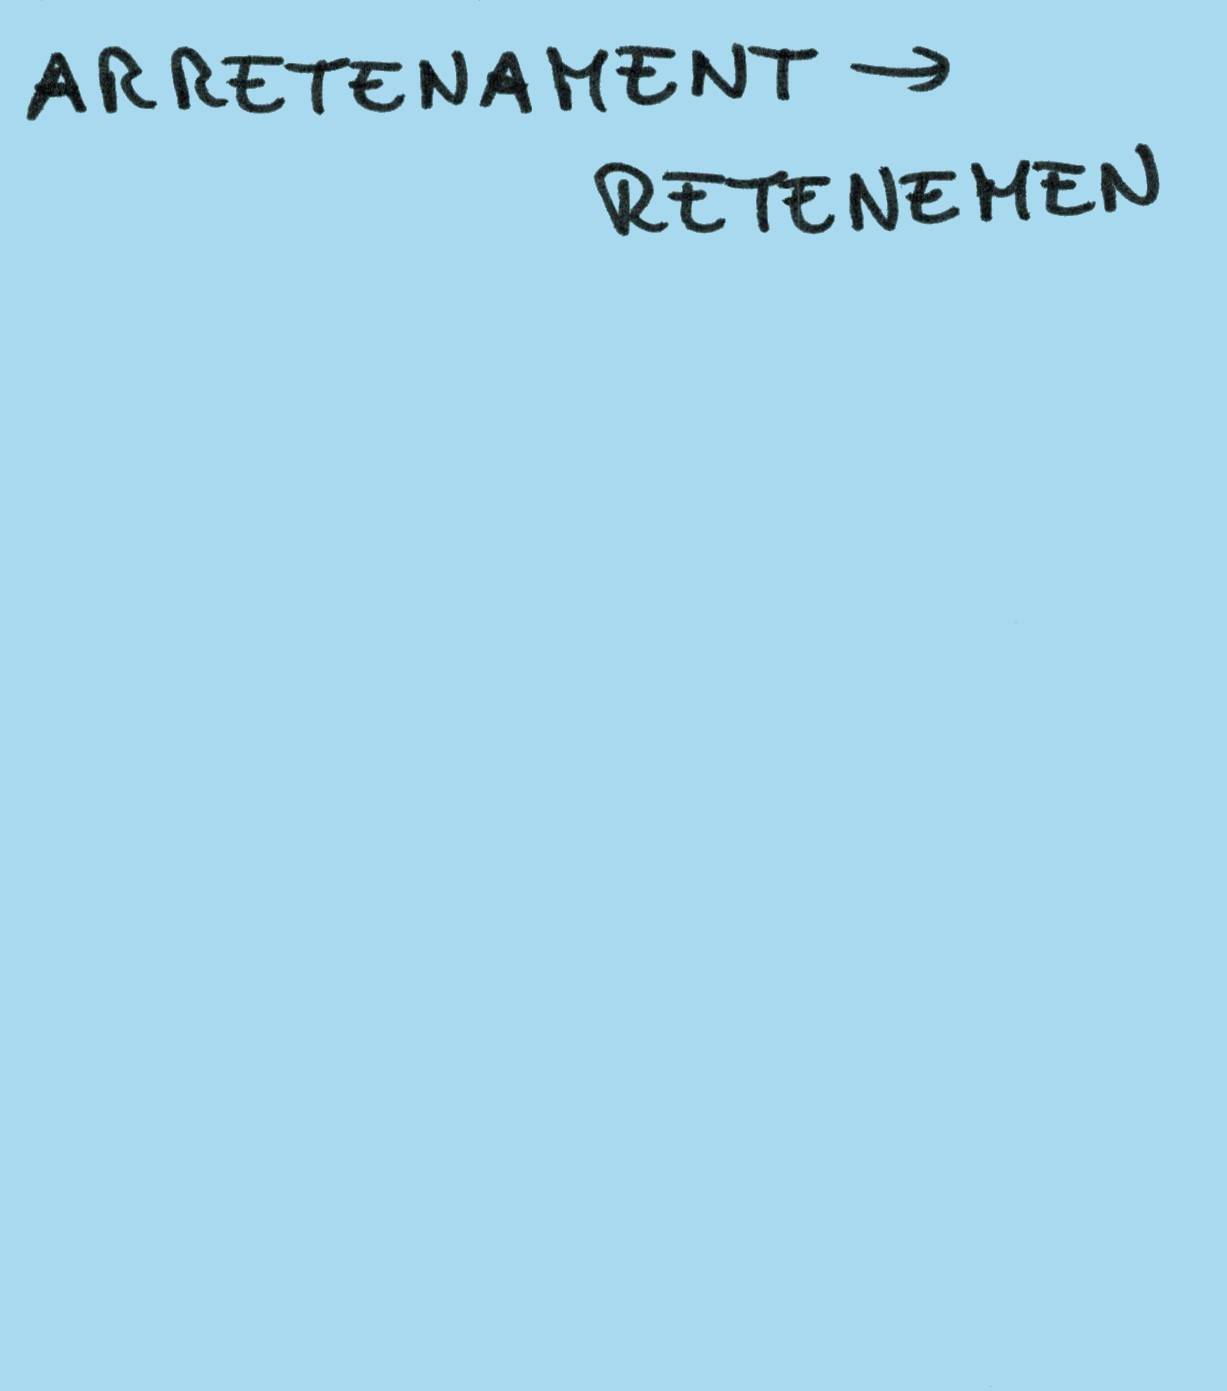 ARRETENAMENT →
RETENEMEN